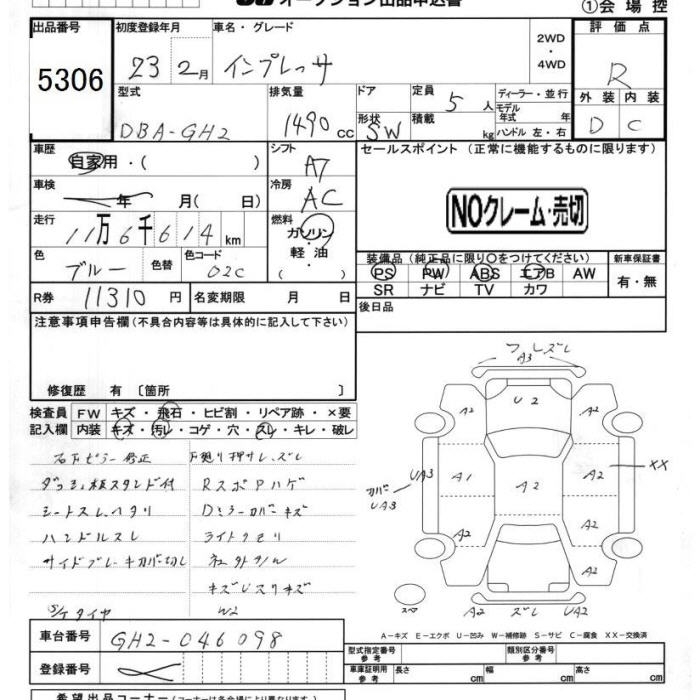 オークション出品申込書
①会場控
出品番号 初度登録年月 車名・グレード 評価点
5306 23 2月 インプレッサ 2WD ・ 4WD R
型式 排気量 ドア 形状 定員 積載 ディーラー・並行 モデル 年式 年 ハンドル 左・右 外装 内装
DBA-GH2 1490 cc SW 5人 kg D C
車歴 自家用・( ) シフト A7 セールスポイント (正常に機能するものに限ります)
車検 年 月( 日) 冷房 AC
NOクレーム・売切
走行 11万6千614km 燃料 ガソリン・軽油・( )
色 ブルー 色替 色コード 02C
装備品 (純正品に限り○をつけてください) 新車保証書
PS PW ABS エアB AW 有・無
SR ナビ TV カワ
R券 11310円 名変期限 月 日 後日品
注意事項申告欄(不具合内容等は具体的に記入して下さい)
修復歴 有〔箇所 〕
検査員 記入欄 FW キズ・飛石・ヒビ割・リペア跡・×要
内装 キズ・汚レ・コゲ・穴・スレ・キレ・破レ
下廻り押サレ、ズレ
ダッシュ板スタンド付 RスポPハゲ
シートスレ、ヘタリ Dミラーカバーキズ
ハンドルスレ ライトクモリ
サイドブレーキカバー切レ
S/Tタイヤ W2
ズレ
A3
A2 U2 A2
UA3 A1 A2 A2 XX
カバー UA3
A2 A2
A2 ズレ UA2
A-キズ E-エクボ U-凹み W-補修跡 S-サビ C-腐食 XX-交換済
車台番号 GH2-046098
登録番号
型式指定番号 参考 類別区分番号 参考
車庫証明用 参考 長さ cm 幅 cm 高さ cm
希望出品コーナー(コーナーは各会場により異なります)